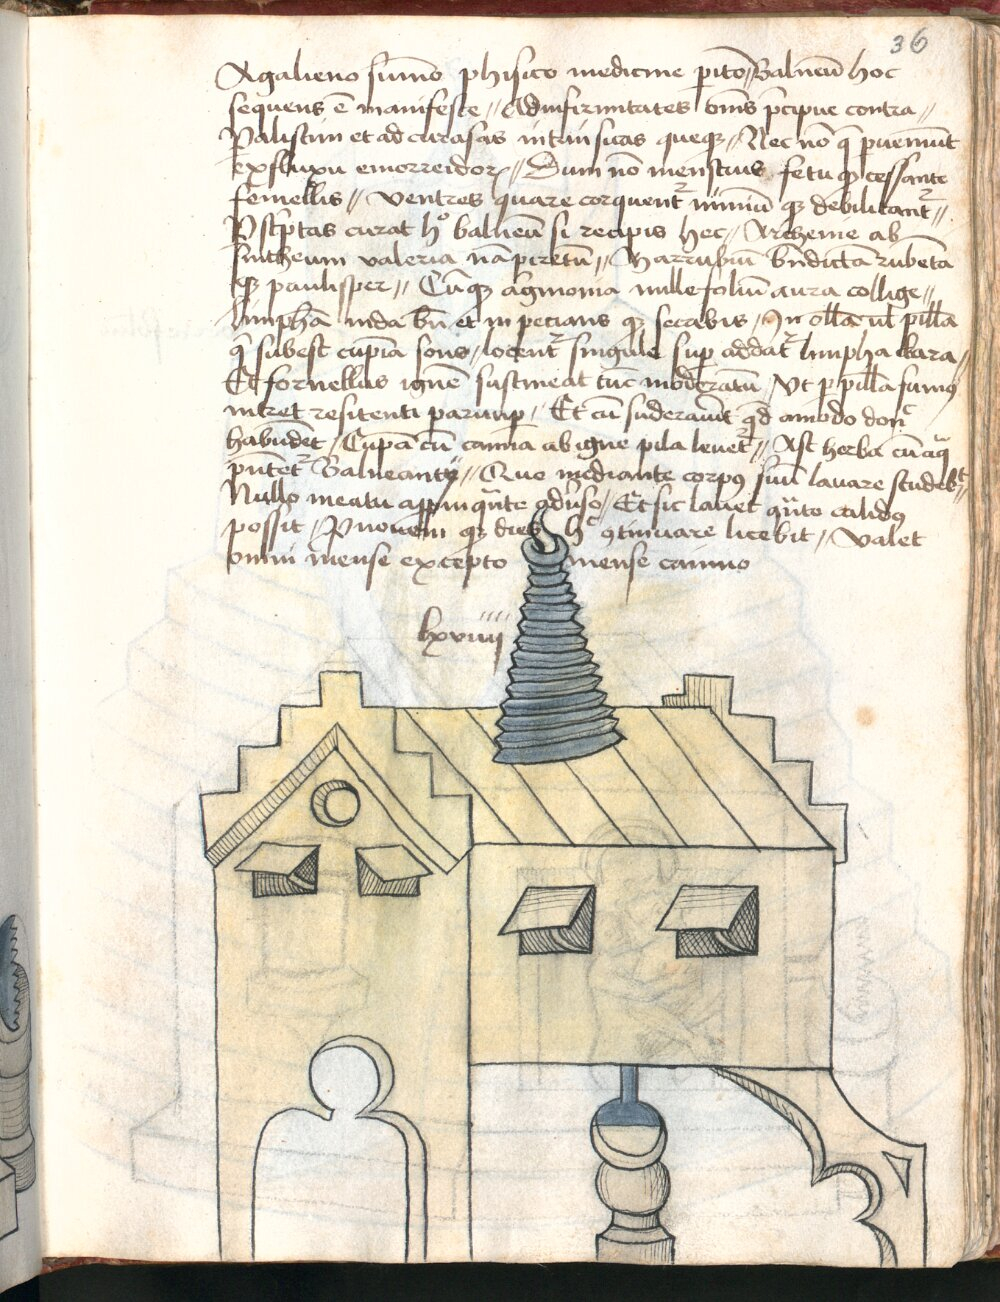 36
A galieno sumo phisico medicine pito Balneu hoc
sequens e manifeste // Ad infirmitates oms pcipue contra //
Palisim et ad curasas intrinsicas queq // Nec no q pueniut
ex fluxu emorreidor // Dum no menstruis fetu q cessante
femellis // ventres quare corquent nimiu q debilitant //
Pscptas curat h balneu si recipis hec // Archeme ab
sintheum valeria na piretu // Marrubiu bndicta rubeta
q paulisper // Cuq agmonia millefoliu aura collige //
limpha inda bn et in pecians q secabis // In olla ul pilla
q subest cupia locent singule sup addat limpha clara
Et fornellus igne sustineat tuc moderatu Ut p pilla fumus
intret resitenti parump // Et cu suderaut qd amodo don
habudet / Cupa cu canna ab igne pila levet // Ast herba cu aq
putet Balneant // Quo mediante corpus suu lavare studet //
Nullo meatu appinqute aduso / Et sic lavet qto calidus
possit / P novem q dies h gtinuare licebit // Valet
omni mense excepto mense canino
lxviiii